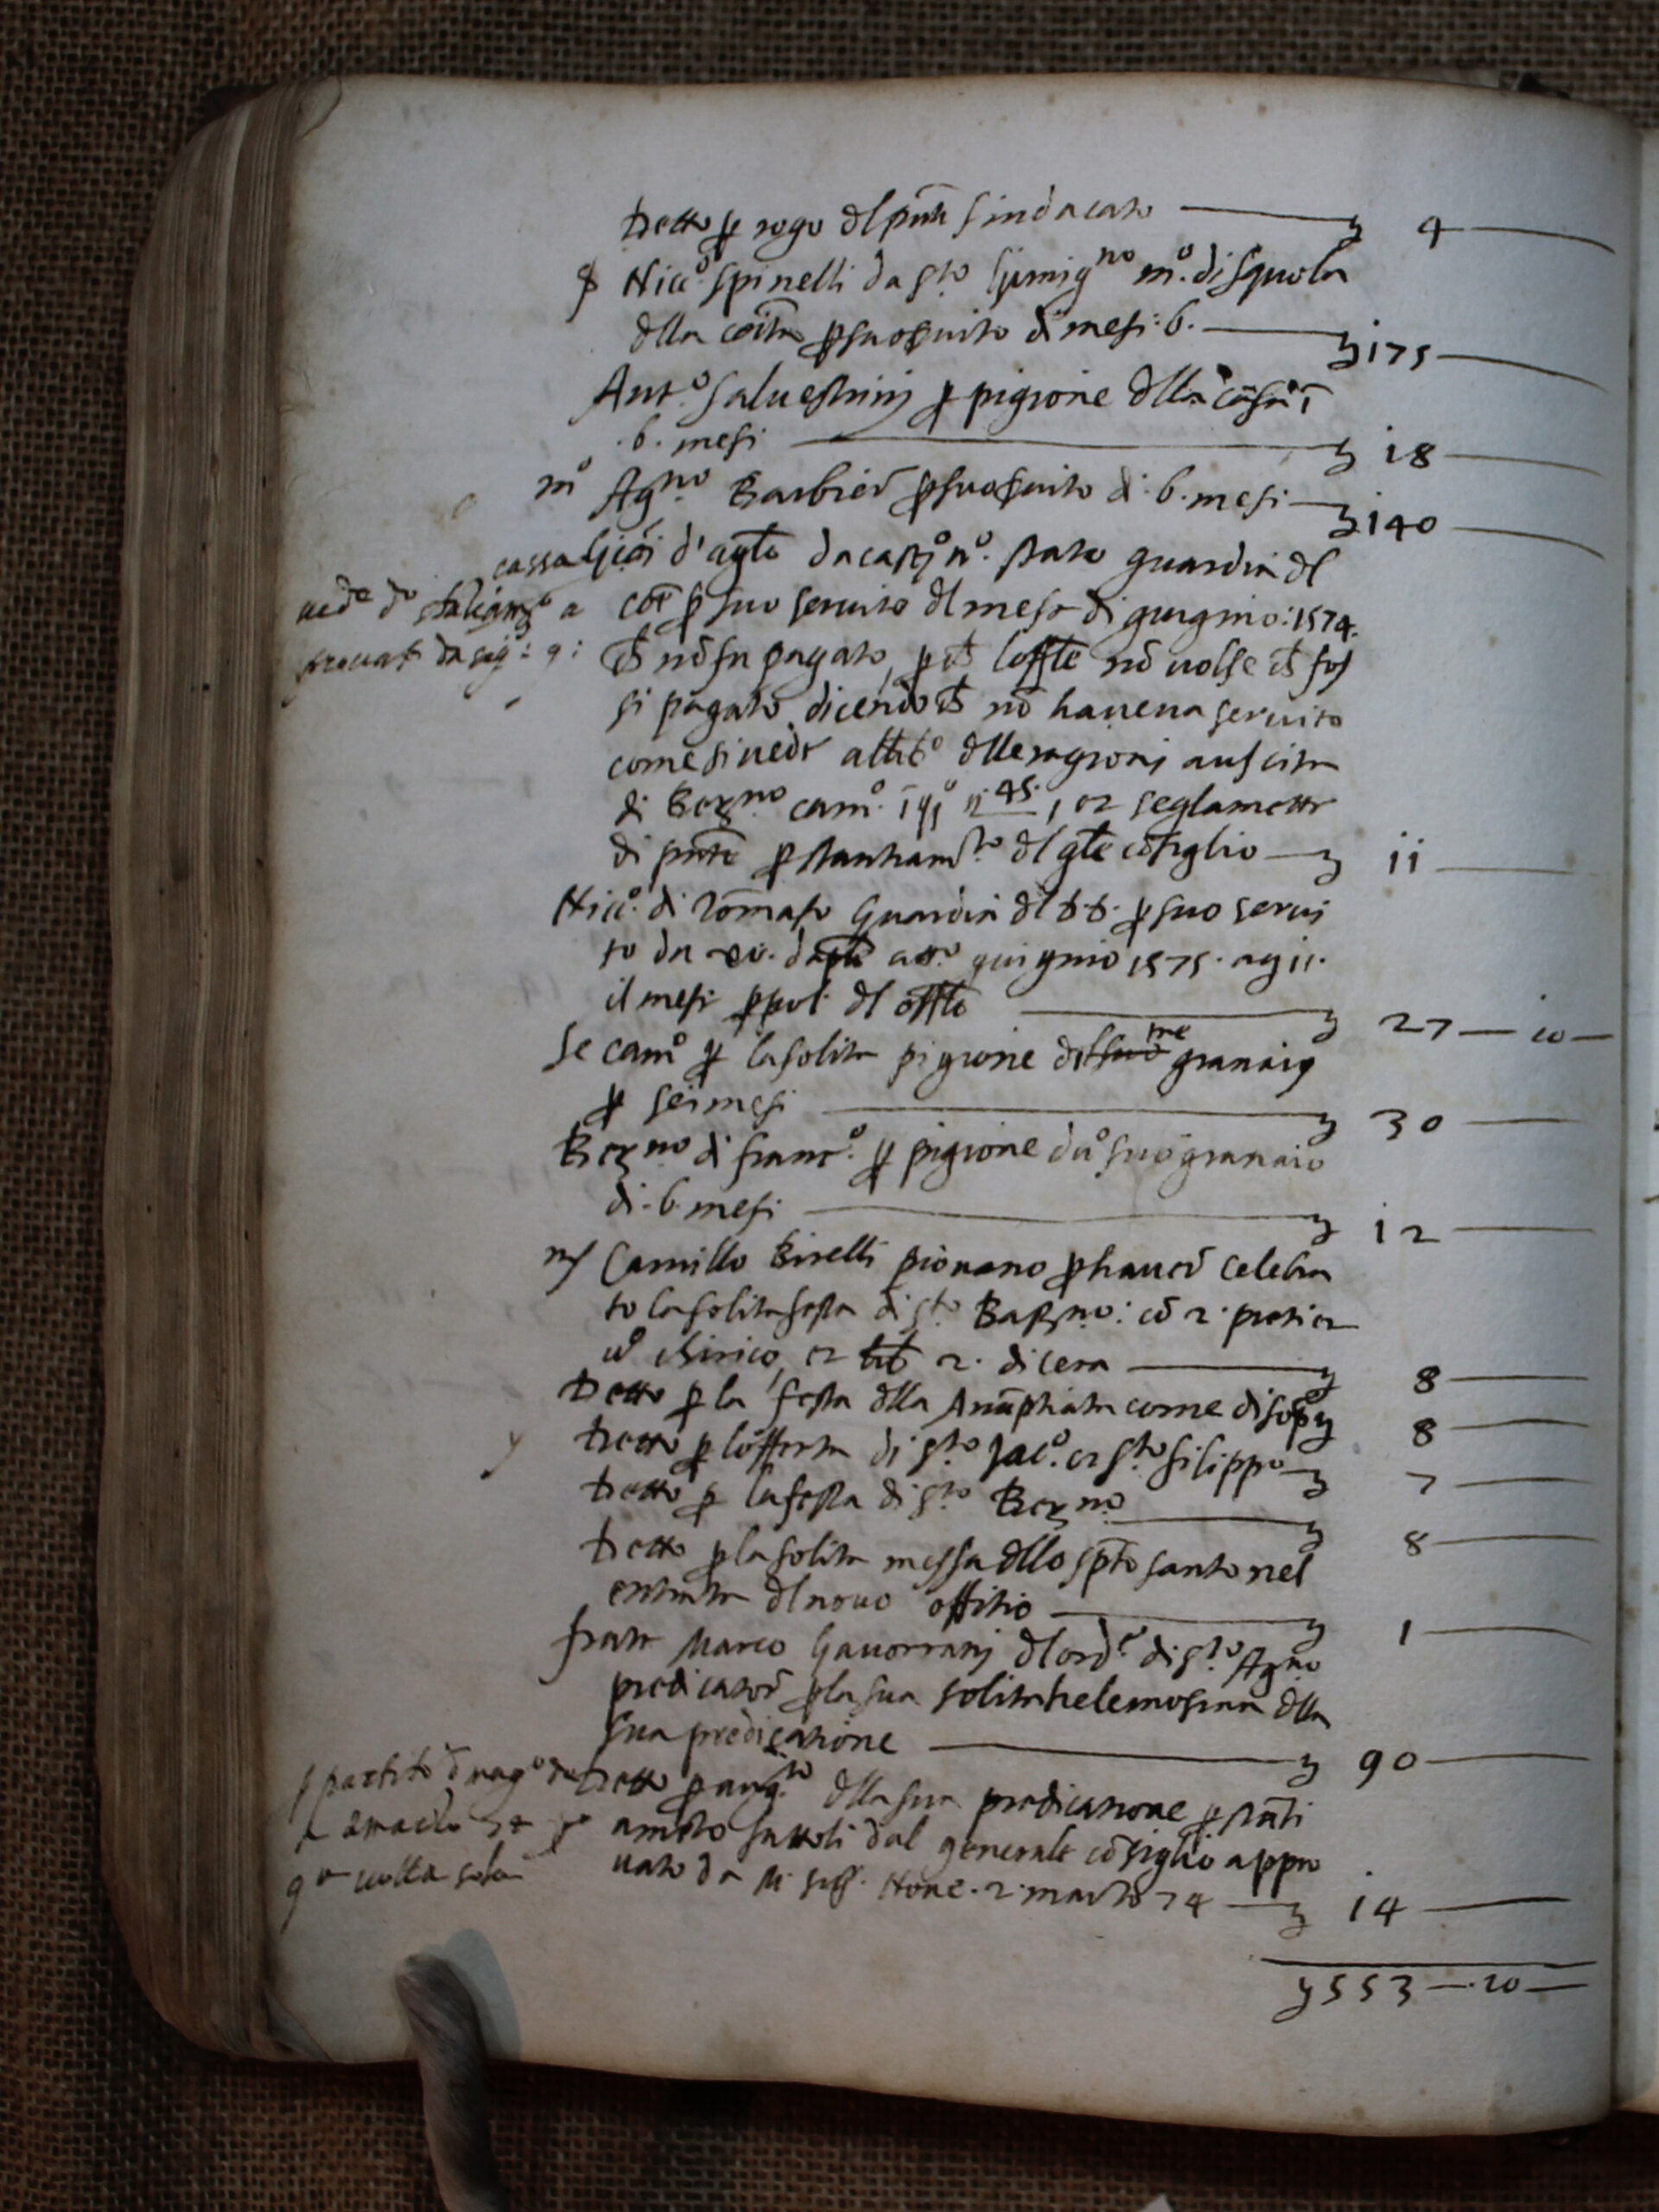 Detto p rogo dl pnte sindacato — 4 —
Nicc.º Spinelli da S.to Gimig.no m.º di squola
dlla coita p suo servito di mesi: 6. — 175 —
Ant.º Salvestrini p pigione dlla casa ī
.6. mesi — 18 —
m.º Ag.no Barbier p suo servito di .6. mesi — 140 —
d'ag.to da cast.º n.º stato guardia dl
coe p suo servito dl mese di giugnio: 1574.
ch nō fu pagato, p ch loffle nō volse ch fos
si pagato, dicendo ch nō haveva servito
come si vede dlle ragioni auscita
di Ber.no cam.º 45. et seglamette
di pnte p stantiam.to dl gle cōsiglio — 11 —
Nicc.º di Tōmaso Guardia dl d.d. p suo servi
to da giugnio 1575. a g. 11.
il mesi p pol. dl offle — 27 — 10 —
Se cam.º p la solita pigione granaio
p sei mesi — 30 —
Ber.no di franc.º p pigione d'ū suo granaio
di .6. mesi — 12 —
m/ Camillo Birelli piovano p haver celebra
to la solita festa di S.to Bast.no: cō 2. preti et
uº chirico, et lib 2. di cera — 8 —
Detto p la festa dlla Anūptiata come di sop — 8 —
Detto p lofferta di S.to Jac.º et S.to filippo — 7 —
Detto p la festa di S.to Ber.no — 8 —
Detto p la solita messa dllo spto santo nel
entrata dl novo offitio — 1 —
frate Marco Gavorrani dl ord.e di S.to Ag.no
predicator p la sua solita helemosina dlla
sua predicatione — 90 —
Detto p aug.to dlla sua predicatione p stāti
amēto fattoli dal generale cōsiglio appro
vato da Hone. 2. marzo 74 — 14 —
553 — 10 —